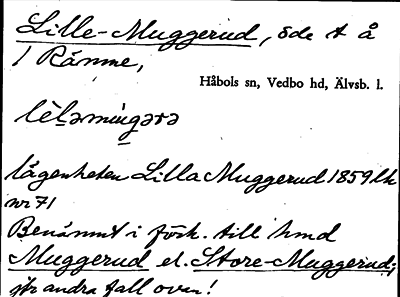 Lille-Muggerud, öde t å
1 Rämne,
Håbols sn, Vedbo hd, Älvsb. l.
lè̀lə mùgərə
lägenheten Lilla Muggerud 1859 lk
nr 71
Benämnt i förh. till hmd
Muggerud el. Store-Muggerud;
jfr andra fall ovan!